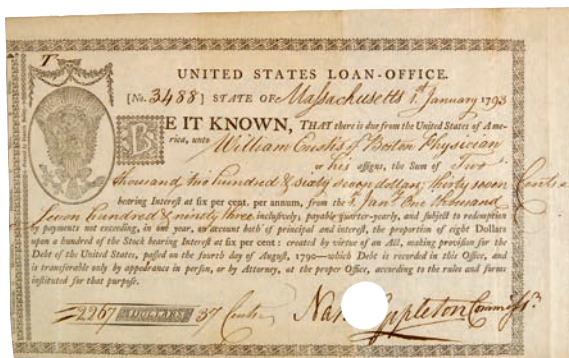 T
UNITED STATES LOAN-OFFICE.
[No. 3488] STATE OF Massachusetts 1st January 1793
BE IT KNOWN, THAT there is due from the United States of Ame-
rica, unto William Eustis of Boston Physician
or his assigns, the Sum of Two
thousand two hundred & sixty seven dollars, thirty seven Cents
bearing Interest at six per cent. per annum, from the 1st Jany One thousand
Seven hundred & ninety three inclusively, payable quarter-yearly, and subject to redemption
by payments not exceeding, in one year, on account both of principal and interest, the proportion of eight Dollars
upon a hundred of the Stock bearing Interest at six per cent: created by virtue of an Act, making provision for the
Debt of the United States, passed on the fourth day of August, 1790—which Debt is recorded in this Office, and
is transferable only by appearance in person, or by Attorney, at the proper Office, according to the rules and forms
instituted for that purpose.
2267 DOLLARS 37 Cents Nat Appleton Commissr.